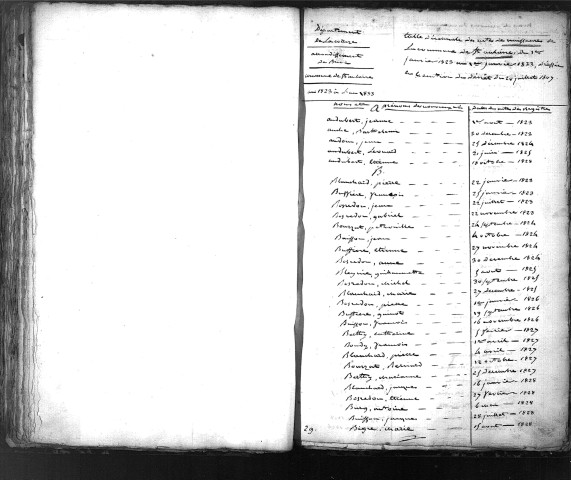 Département
de la Corrèze
arrondissement
de Brive
commune de St aulaire
an 1823 à l'an 1833
table décennale des actes de naissances de
la commune de St aulaire, du 1er
janvier 1823 au 1er janvier 1833,
en exécution du décret du 20 juillet 1807.
noms et prénoms des nouveaux nés
Dates des actes des registres
A
audubert, jeanne 1er aout - 1823
30 décembre - 1823
25 décembre 1824
audubert, Léonard 3 juin - 1825
audubert, étienne 10 octobre - 1828
B.
Blanchard, pierre 22 janvier - 1823
Buffière, françois 25 janvier - 1823
Bosredon, jean 22 juillet - 1823
Bosredon, gabriel 22 novembre 1823
24 septembre - 1824
Buisson, jean 4 octobre - 1824
Buffière, étienne 27 novembre 1824
Bosredon, anne 30 décembre 1824
5 aout - 1825
Bosredon, michel 30 septembre 1825
Blanchard, marie 27 décembre - 1825
Bosredon, pierre 18 janvier - 1826
Buffière, 29 septembre - 1826
Buisson, françois 16 novembre 1826
Berthy, catherine 5 février - 1827
françois 1er avril - 1827
Blanchard, pierre 4 avril - 1827
Bernard 12 octobre - 1827
Berthy, marianne 25 décembre 1827
Blanchard, jacques 16 janvier - 1828
Bosredon, étienne 27 février - 1828
antoine 6 mai - 1828
Buisson, jacques 28 juillet - 1828
marie 15 aout - 1828
29.